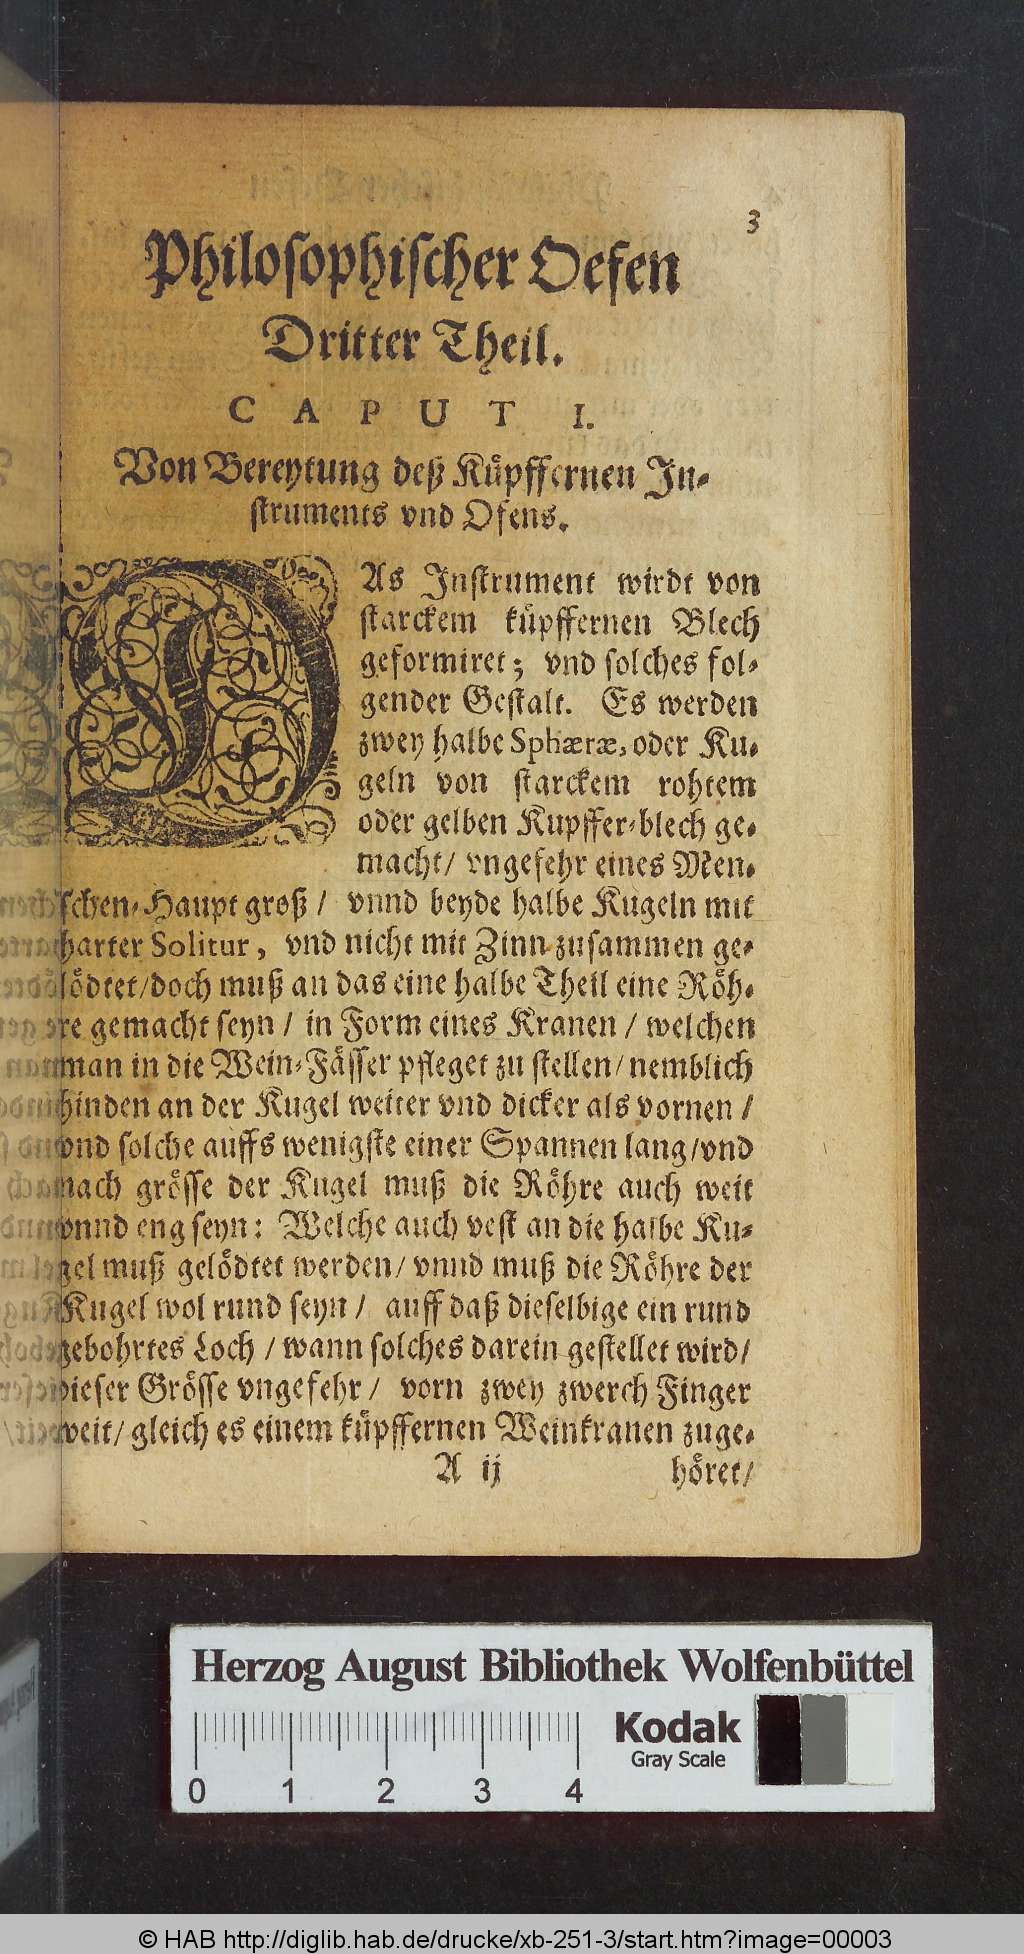 3
Philosophischer Oefen
Dritter Theil.
CAPUT I.
Von Bereytung deß Küpffernen In-
struments vnd Ofens.
DAs Instrument wirdt von
starckem küpffernen Blech
geformiret; vnd solches fol-
gender Gestalt. Es werden
zwey halbe Sphæræ, oder Ku-
geln von starckem rohtem
oder gelben Kupffer-blech ge-
macht/ vngefehr eines Men-
schen-Haupt groß/ vnnd beyde halbe Kugeln mit
harter Solitur, vnd nicht mit Zinn zusammen ge-
lödtet/doch muß an das eine halbe Theil eine Röh-
re gemacht seyn/ in Form eines Kranen/ welchen
man in die Wein-Fässer pfleget zu stellen/ nemblich
hinden an der Kugel weiter vnd dicker als vornen/
vnd solche auffs wenigste einer Spannen lang/vnd
nach grösse der Kugel muß die Röhre auch weit
vnnd eng seyn: Welche auch vest an die halbe Ku-
gel muß gelödtet werden/ vnnd muß die Röhre der
Kugel wol rund seyn/ auff daß dieselbige ein rund
gebohrtes Loch/ wann solches darein gestellet wird/
dieser Grösse vngefehr/ vorn zwey zwerch Finger
weit/ gleich es einem küpffernen Weinkranen zuge-
A ij höret/
Herzog August Bibliothek Wolfenbüttel
Kodak
Gray Scale
0 1 2 3 4
© HAB http://diglib.hab.de/drucke/xb-251-3/start.htm?image=00003